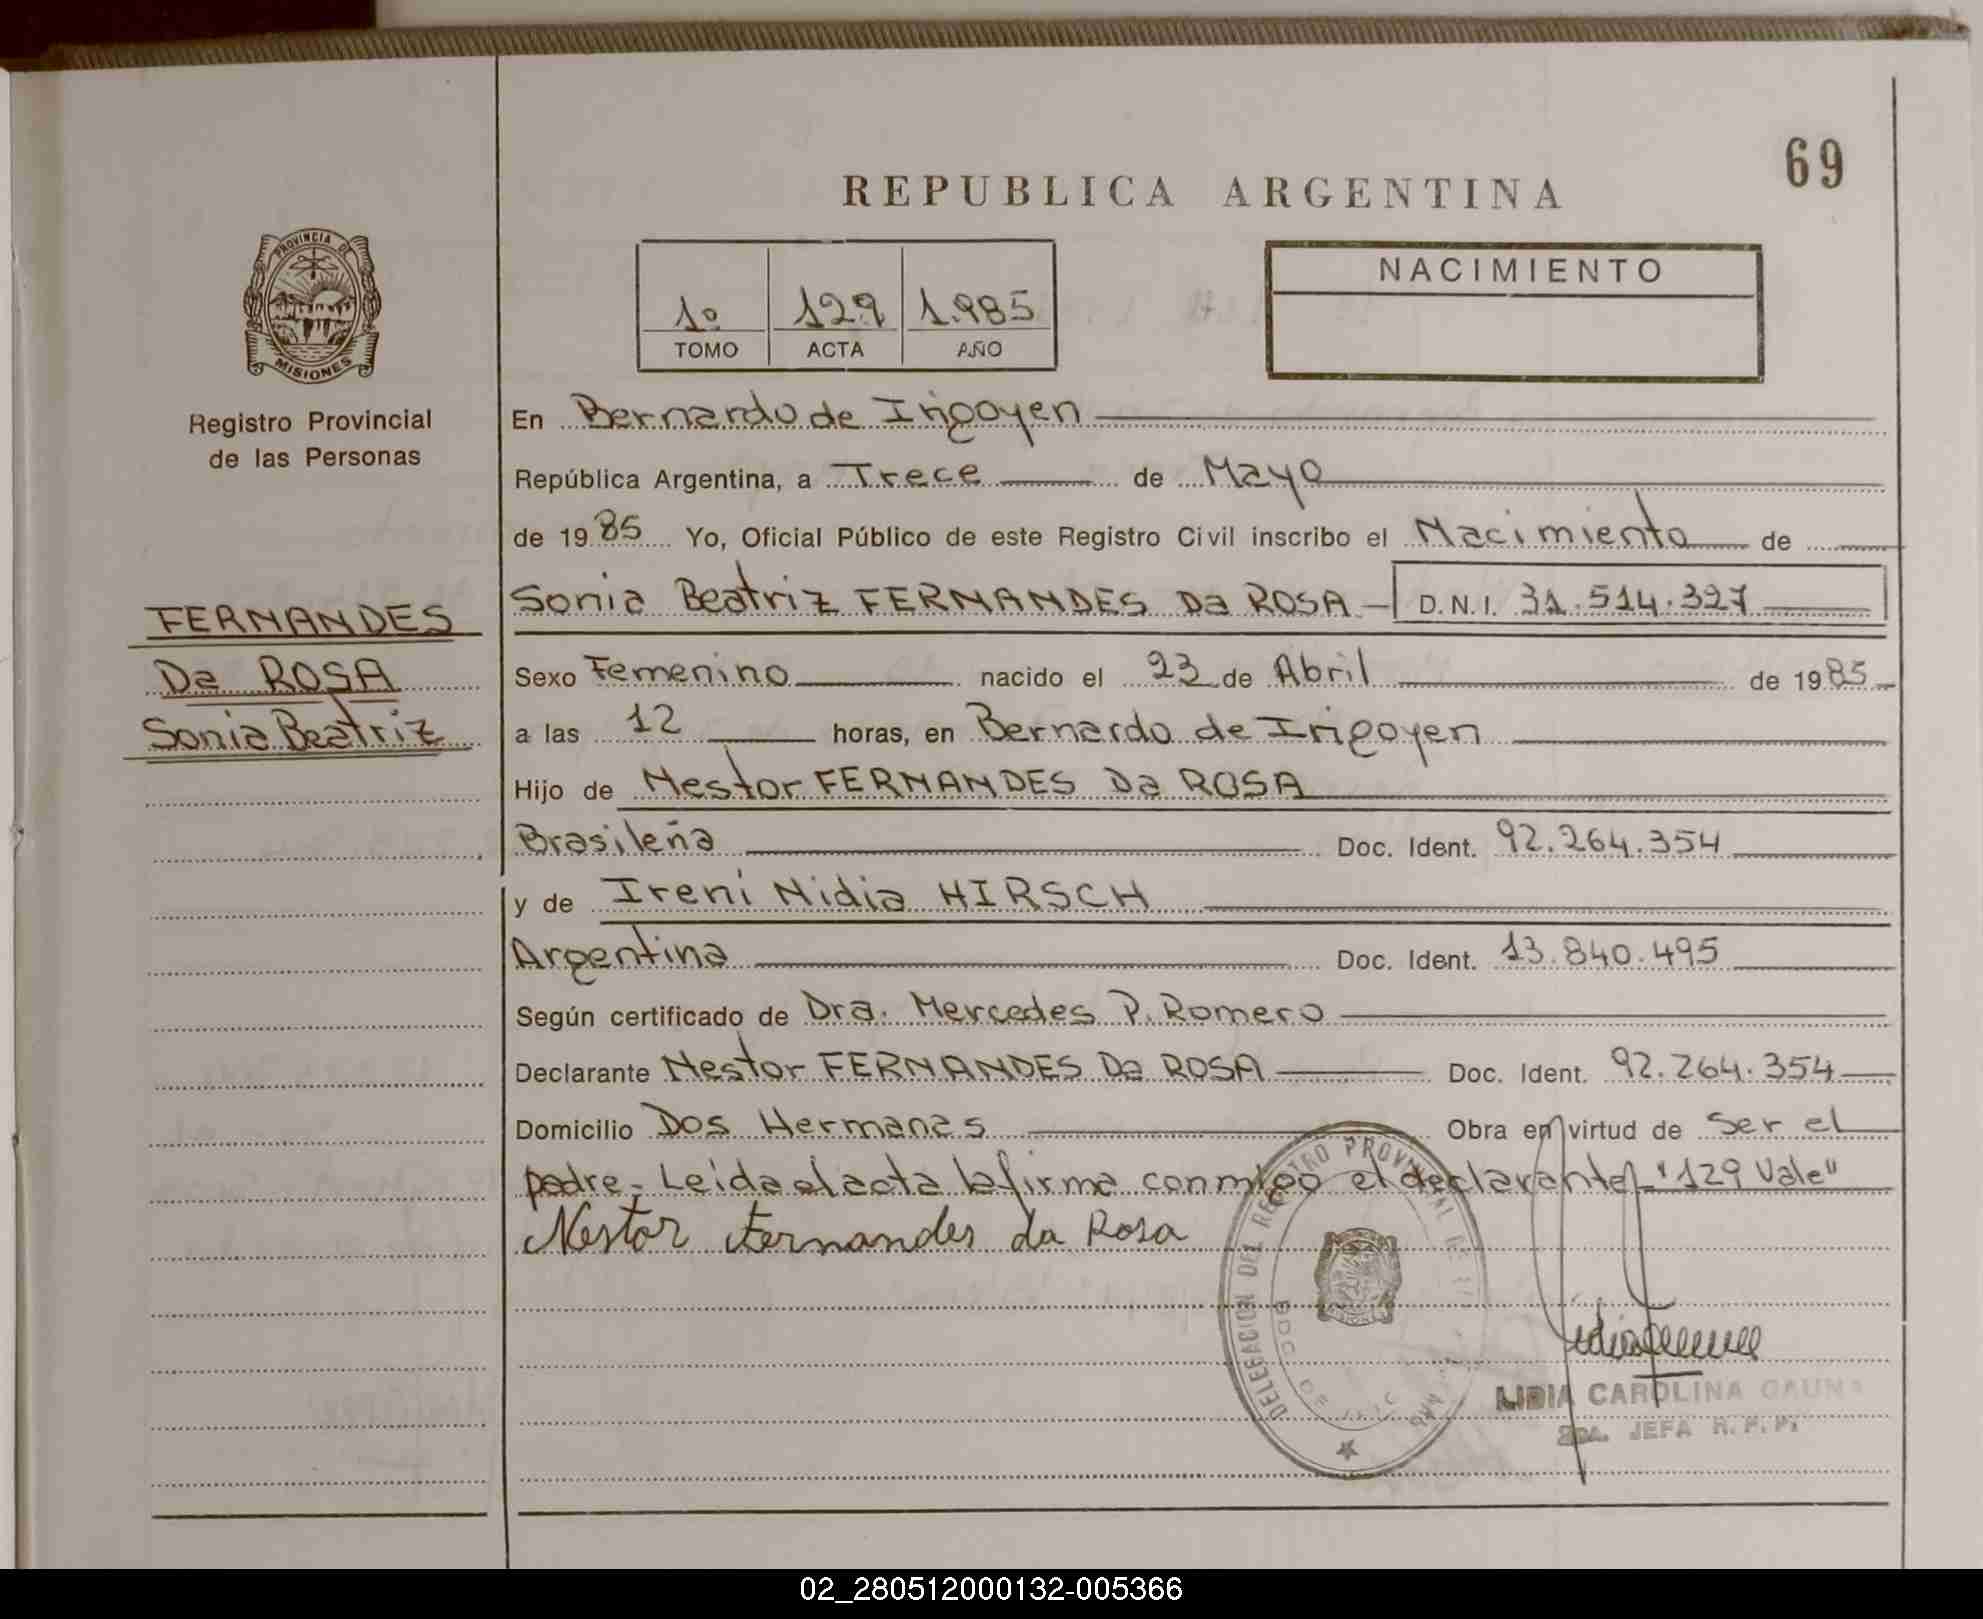 69
REPUBLICA ARGENTINA
PROVINCIA DE
MISIONES
Registro Provincial
de las Personas
1º 129 1.985
TOMO ACTA AÑO
NACIMIENTO
FERNANDES
Da ROSA
Sonia Beatriz
En Bernardo de Irigoyen
República Argentina, a Trece de Mayo
de 1985 Yo, Oficial Público de este Registro Civil inscribo el Nacimiento de
Sonia Beatriz FERNANDES Da ROSA D.N.I. 31.514.327
Sexo Femenino nacido el 23 de Abril de 1985
a las 12 horas, en Bernardo de Irigoyen
Hijo de Nestor FERNANDES Da ROSA
Brasileña Doc. Ident. 92.264.354
y de Ireni Nidia HIRSCH
Argentina Doc. Ident. 13.840.495
Según certificado de Dra. Mercedes P. Romero
Declarante Nestor FERNANDES Da ROSA Doc. Ident. 92.264.354
Domicilio Dos Hermanas Obra en virtud de Ser el
padre, Leída el acta la firma conmigo el declarante "129 Vale"
Nestor Fernandes da Rosa
DELEGACION DEL REGISTRO PROVINCIAL DE
LIDIA CAROLINA GAUNA
2DA. JEFA R.P.P.
02_280512000132-005366